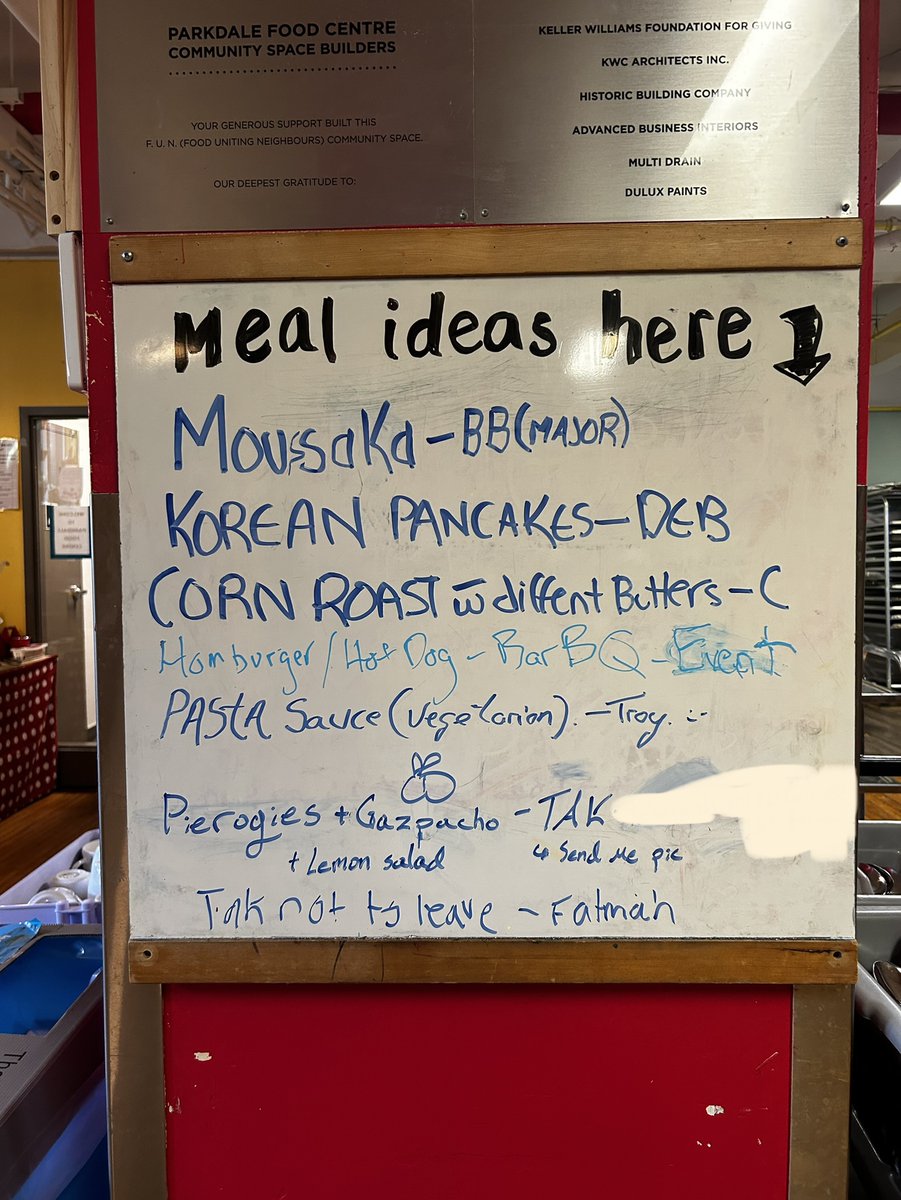 PARKDALE FOOD CENTRE
COMMUNITY SPACE BUILDERS
YOUR GENEROUS SUPPORT BUILT THIS
F. U. N. (FOOD UNITING NEIGHBOURS) COMMUNITY SPACE.
OUR DEEPEST GRATITUDE TO:
KELLER WILLIAMS FOUNDATION FOR GIVING
KWC ARCHITECTS INC.
HISTORIC BUILDING COMPANY
ADVANCED BUSINESS INTERIORS
MULTI DRAIN
DULUX PAINTS
Meal ideas here
Moussaka - BB (MAJOR)
KOREAN PANCAKES - DEB
CORN ROAST w̄ diffent Butters - C
Hamburger / Hot Dog - Bar BQ - Event
PASTA Sauce (Vegetarian). - Troy. :-
Pierogies + Gazpacho - TAK
+ Lemon salad
↳ Send me pic
Tak not to leave - Fatmah